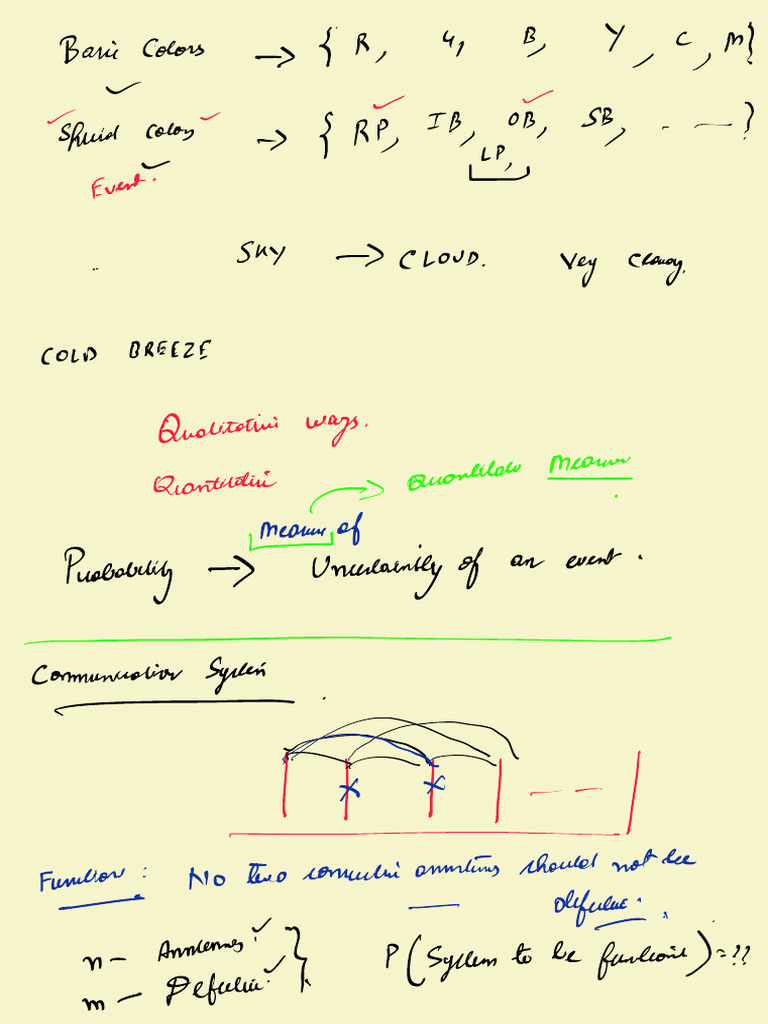 Basic Colors → { R, G, B, Y, C, M}
Shuid colors → { RP, IB, OB, SB, . — }
LP,
Event.
SKY → CLOUD. Vey Cloudy.
COLD BREEZE
Qualitative ways.
Quantitative → Quantitative Measure.
Measure of
Probability → Uncertainity of an event.
Communication System
X X
Function: No two consecutive antennas should not be
defective.
n — Antennas.
m — Defective. } P(System to be functional) = ??